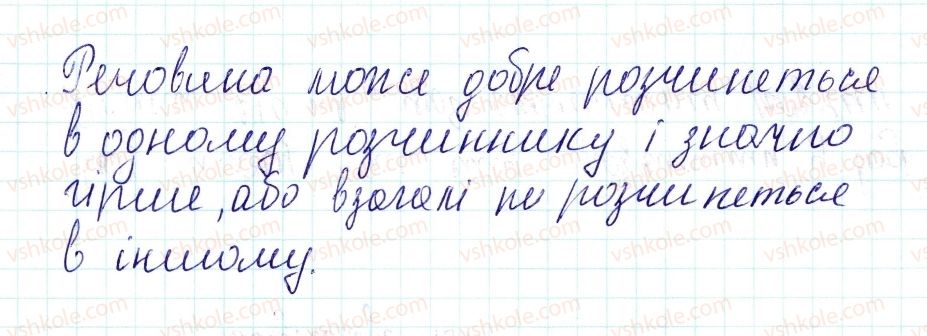 Речовина може добре розчинеться
в одному розчиннику і значно
гірше, або взагалі не розчинеться
в іншому.